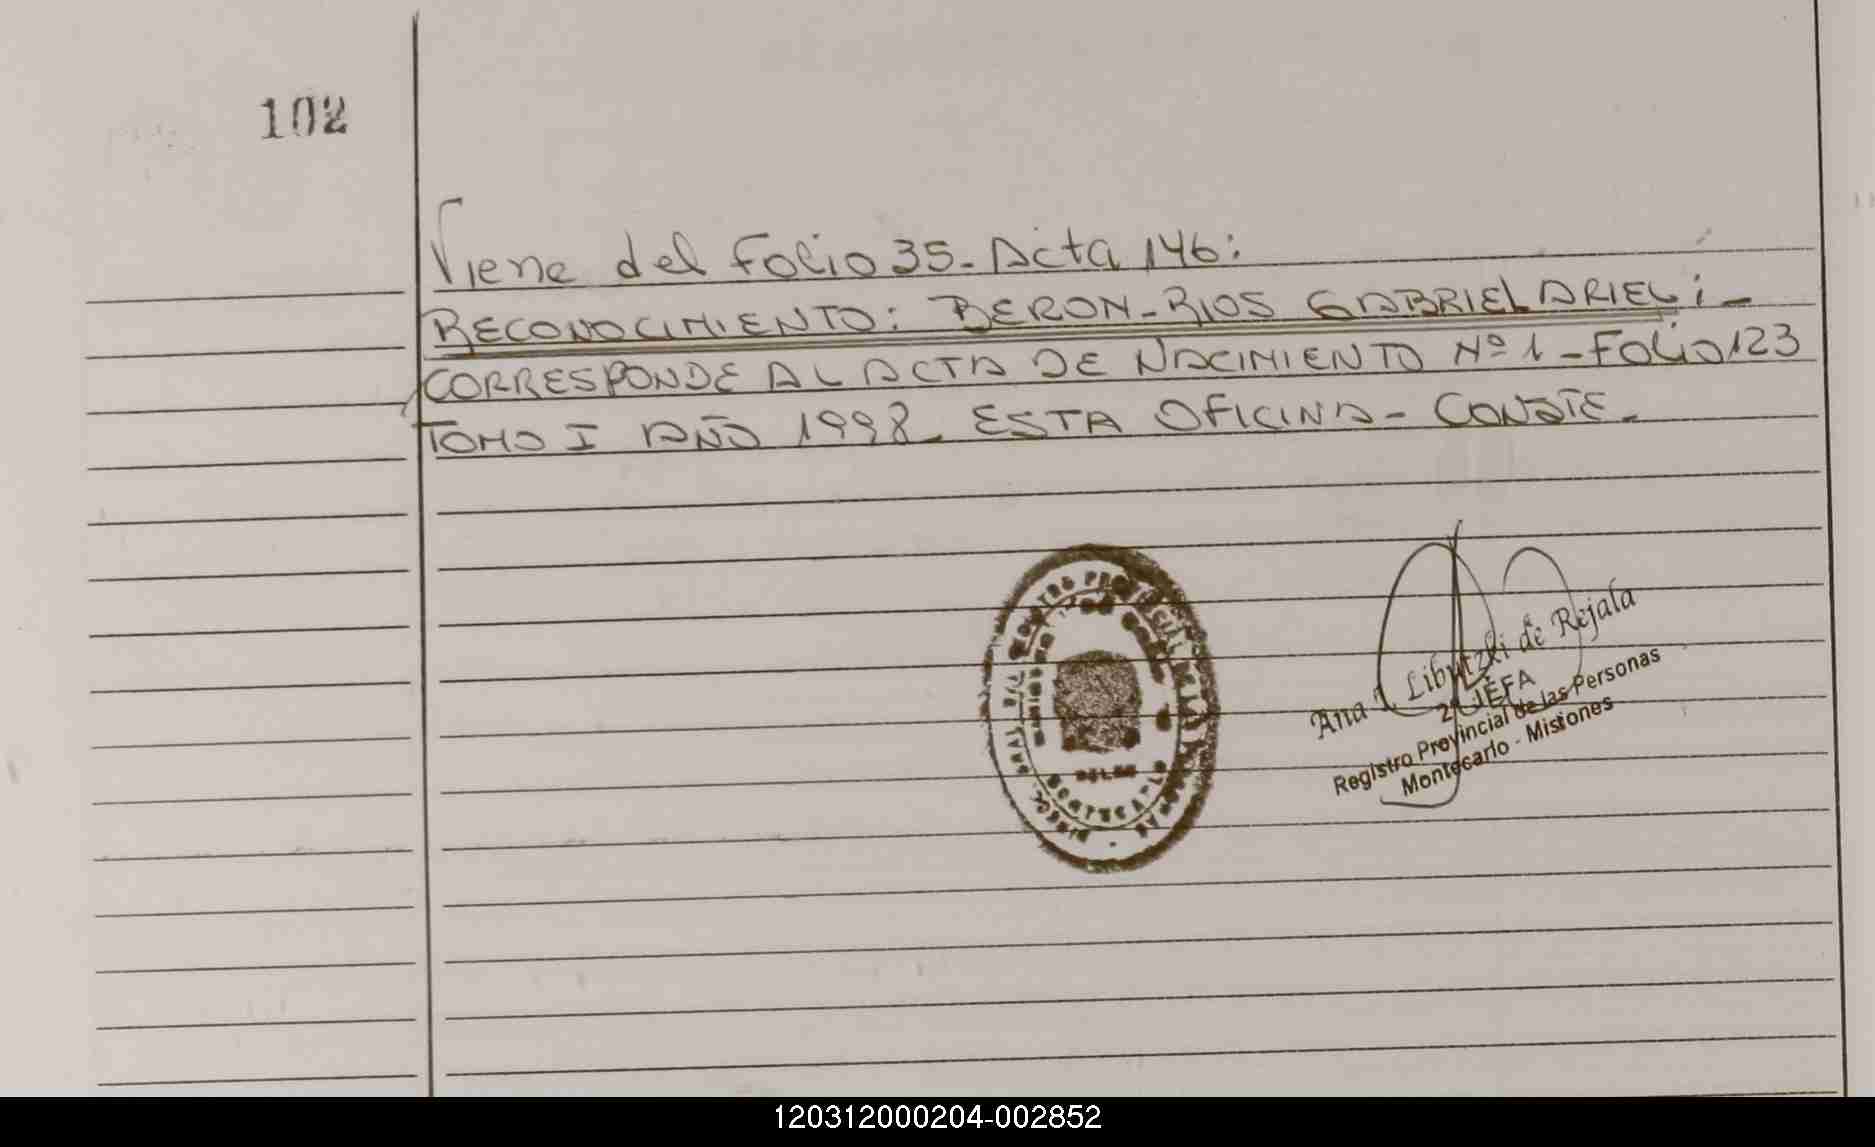 102
Viene del Folio 35 - Acta 146:
RECONOCIMIENTO: BERON - RIOS GABRIEL ARIEL: -
CORRESPONDE AL ACTA DE NACIMIENTO Nº 1 - FOLIO 123
TOMO I AÑO 1998 - ESTA OFICINA - CONSTE -
REGISTRO PROVINCIAL DE LAS PERSONAS
MONTECARLO
Ana Libutzki de Rejala
2ª JEFA
Registro Provincial de las Personas
Montecarlo - Misiones
120312000204-002852